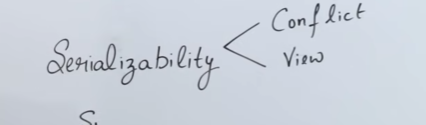 Serializability
Conflict
View